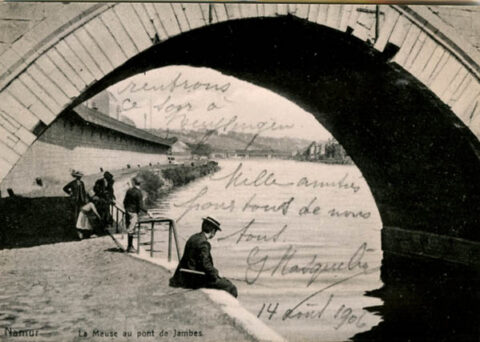 rentrons
ce soir à
Mille amitiés
pour tout de nous
tous
14 août 1906
Namur
La Meuse au pont de Jambes.